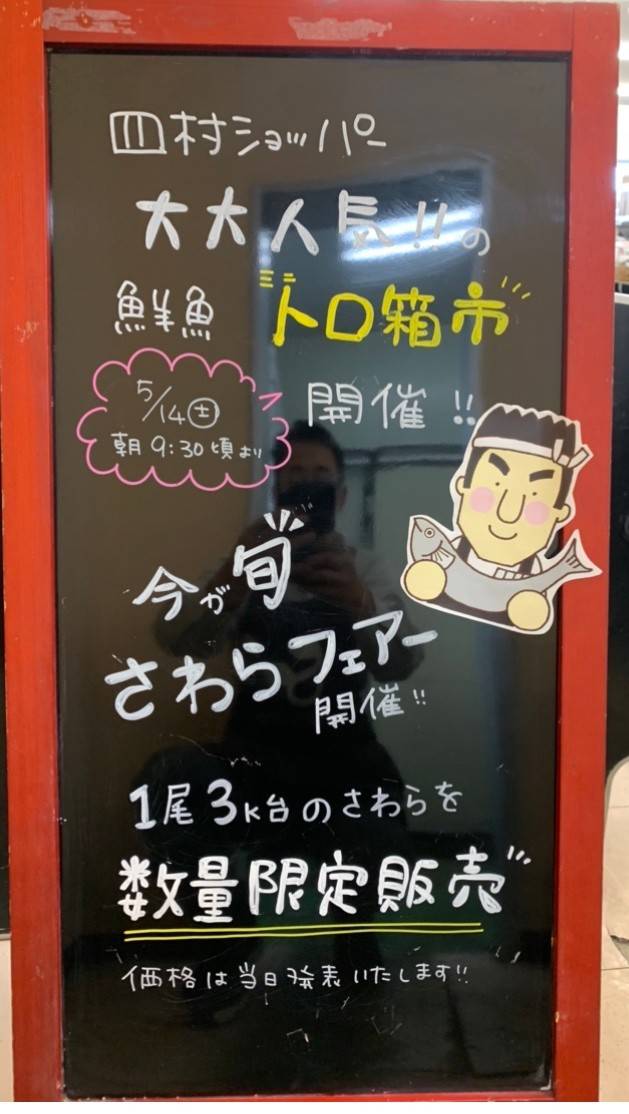 皿村ショッパー
大大人気!!の
鮮魚 ミニトロ箱市
5/14(土)
朝9:30頃より
開催!!
今が旬
さわらフェアー
開催!!
1尾3K台のさわらを
数量限定販売
価格は当日発表いたします!!